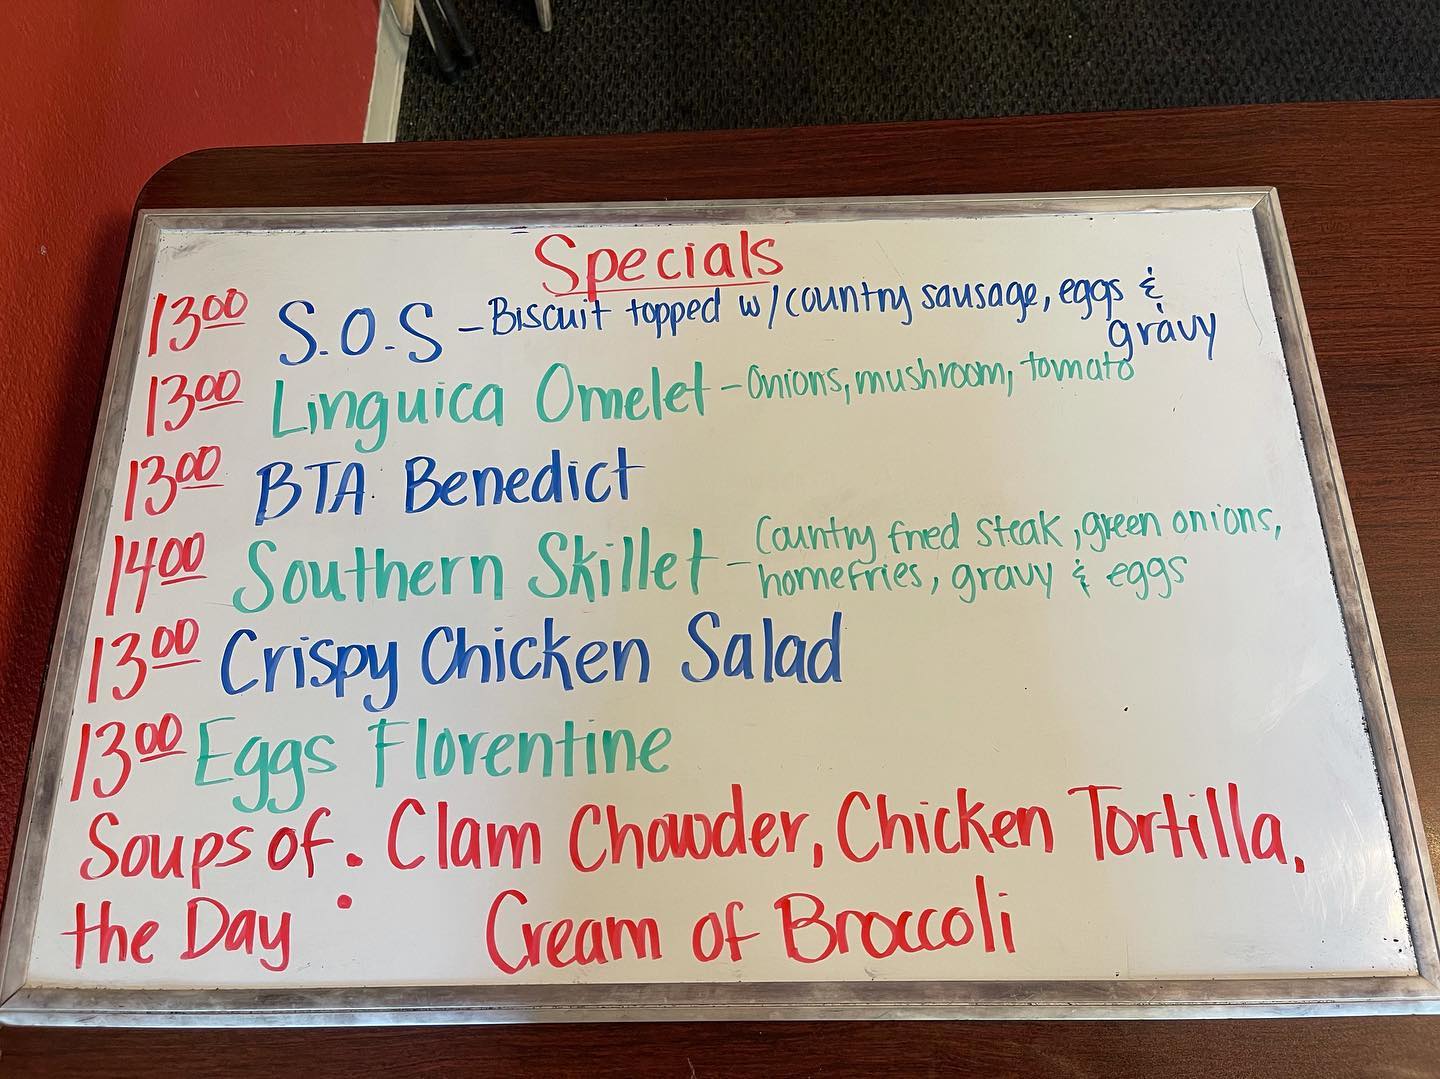 Specials
13 00 S.O.S - Biscuit topped w/country sausage, eggs &
gravy
13 00 Linguica Omelet - Onions, mushroom, tomato
13 00 BTA Benedict
14 00 Southern Skillet - Country fried steak, green onions,
homefries, gravy & eggs
13 00 Crispy Chicken Salad
13 00 Eggs Florentine
Soups of : Clam Chowder, Chicken Tortilla,
the Day Cream of Broccoli